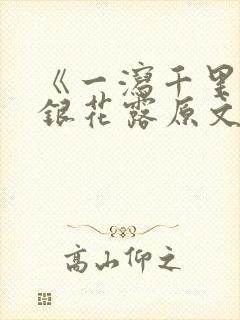 《一泻千里
银花露原文
高山仰之